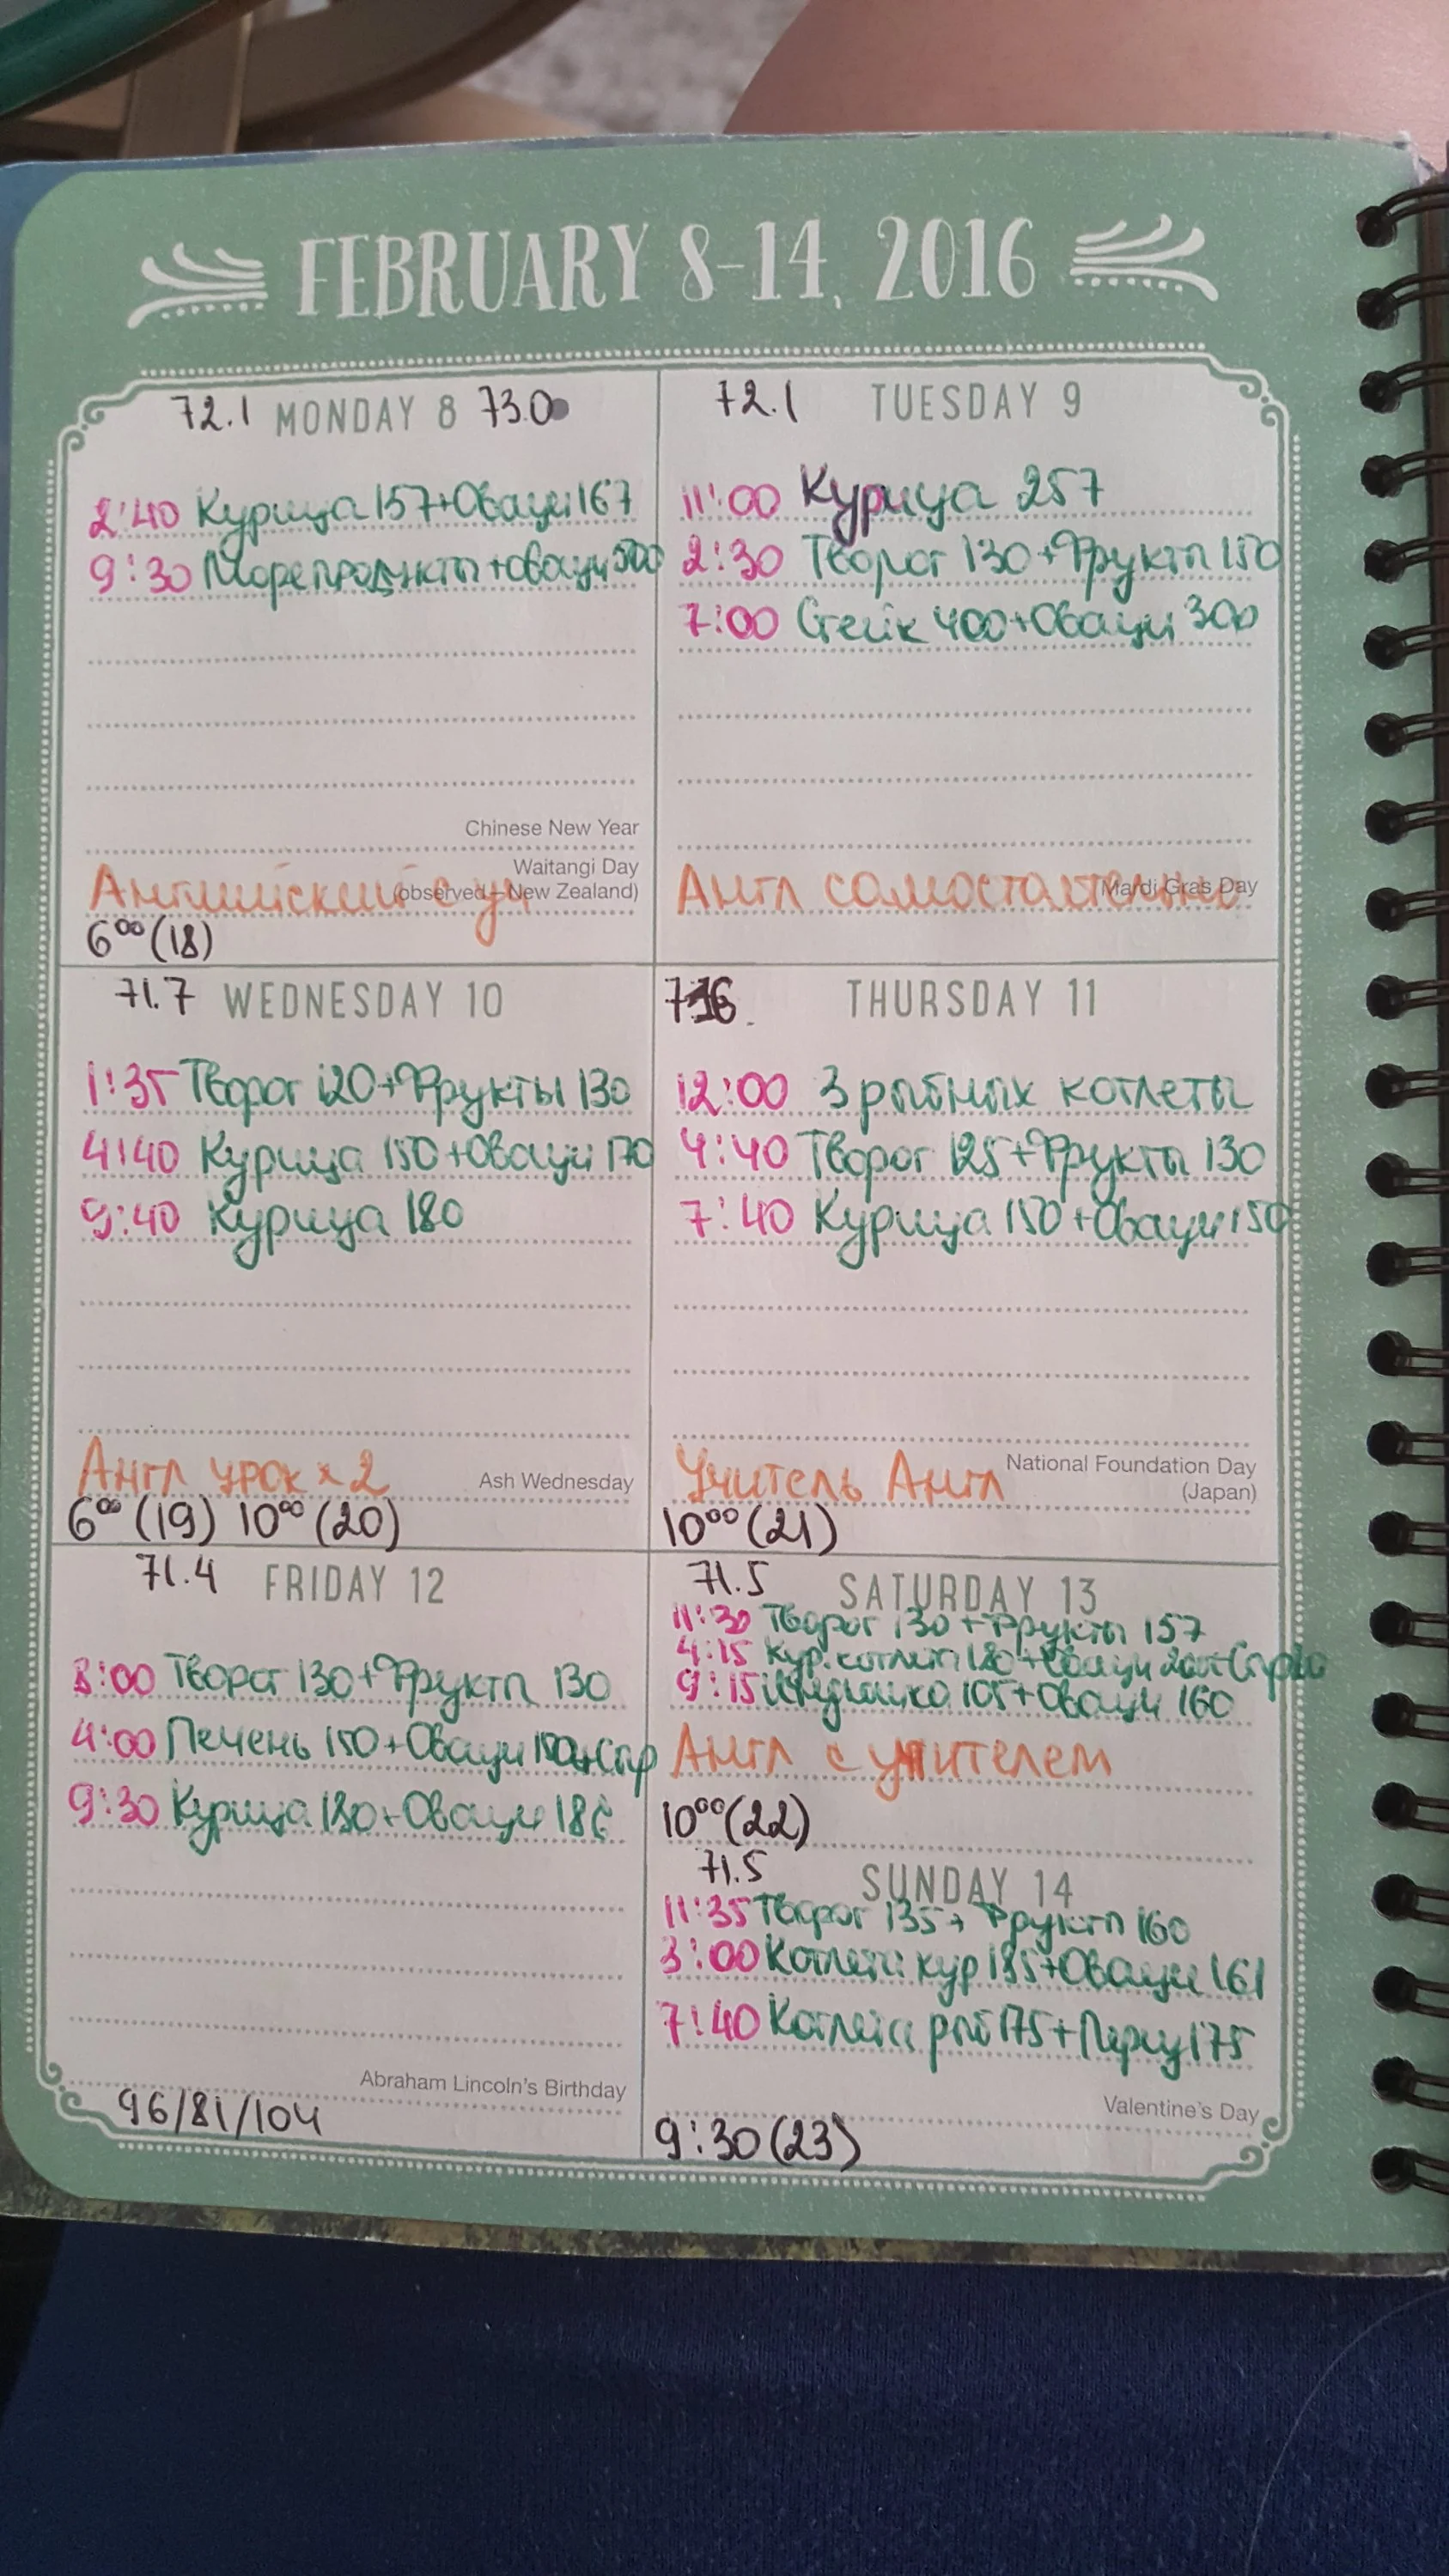 FEBRUARY 8-14, 2016
72.1 MONDAY 8 73.0
2:40 Курица 157+Овощи 167
9:30 Морепродукты+овощи 300
Chinese New Year
Waitangi Day
(observed—New Zealand)
Английский с уч
6⁰⁰ (18)
72.1 TUESDAY 9
11:00 Курица 257
2:30 Творог 130+Фрукты 150
7:00 Стейк 400+Овощи 300
Mardi Gras Day
Англ самостоятельно
71.7 WEDNESDAY 10
1:35 Творог 120+Фрукты 130
4:40 Курица 150+Овощи 170
9:40 Курица 180
Англ урок x 2
Ash Wednesday
6⁰⁰ (19) 10⁰⁰ (20)
THURSDAY 11
12:00 3 рыбных котлеты
4:40 Творог 125+Фрукты 130
7:40 Курица 150+Овощи 150
National Foundation Day
(Japan)
Учитель Англ
10⁰⁰ (21)
71.4 FRIDAY 12
8:00 Творог 130+Фрукты 130
4:00 Печень 150+Овощи
9:30 Курица 180+Овощи
Abraham Lincoln's Birthday
96/81/104
71.5 SATURDAY 13
11:30 Творог 130+Фрукты 157
4:15 Кур. котлеты 180+Овощи
9:15 Индюшка 105+Овощи 160
Англ с учителем
10⁰⁰ (22)
71.5 SUNDAY 14
11:35 Творог 135+Фрукты 160
3:00 Котлета кур 185+Овощи 161
7:40 Котлета рыб 175+Перец 175
Valentine's Day
9:30 (23)